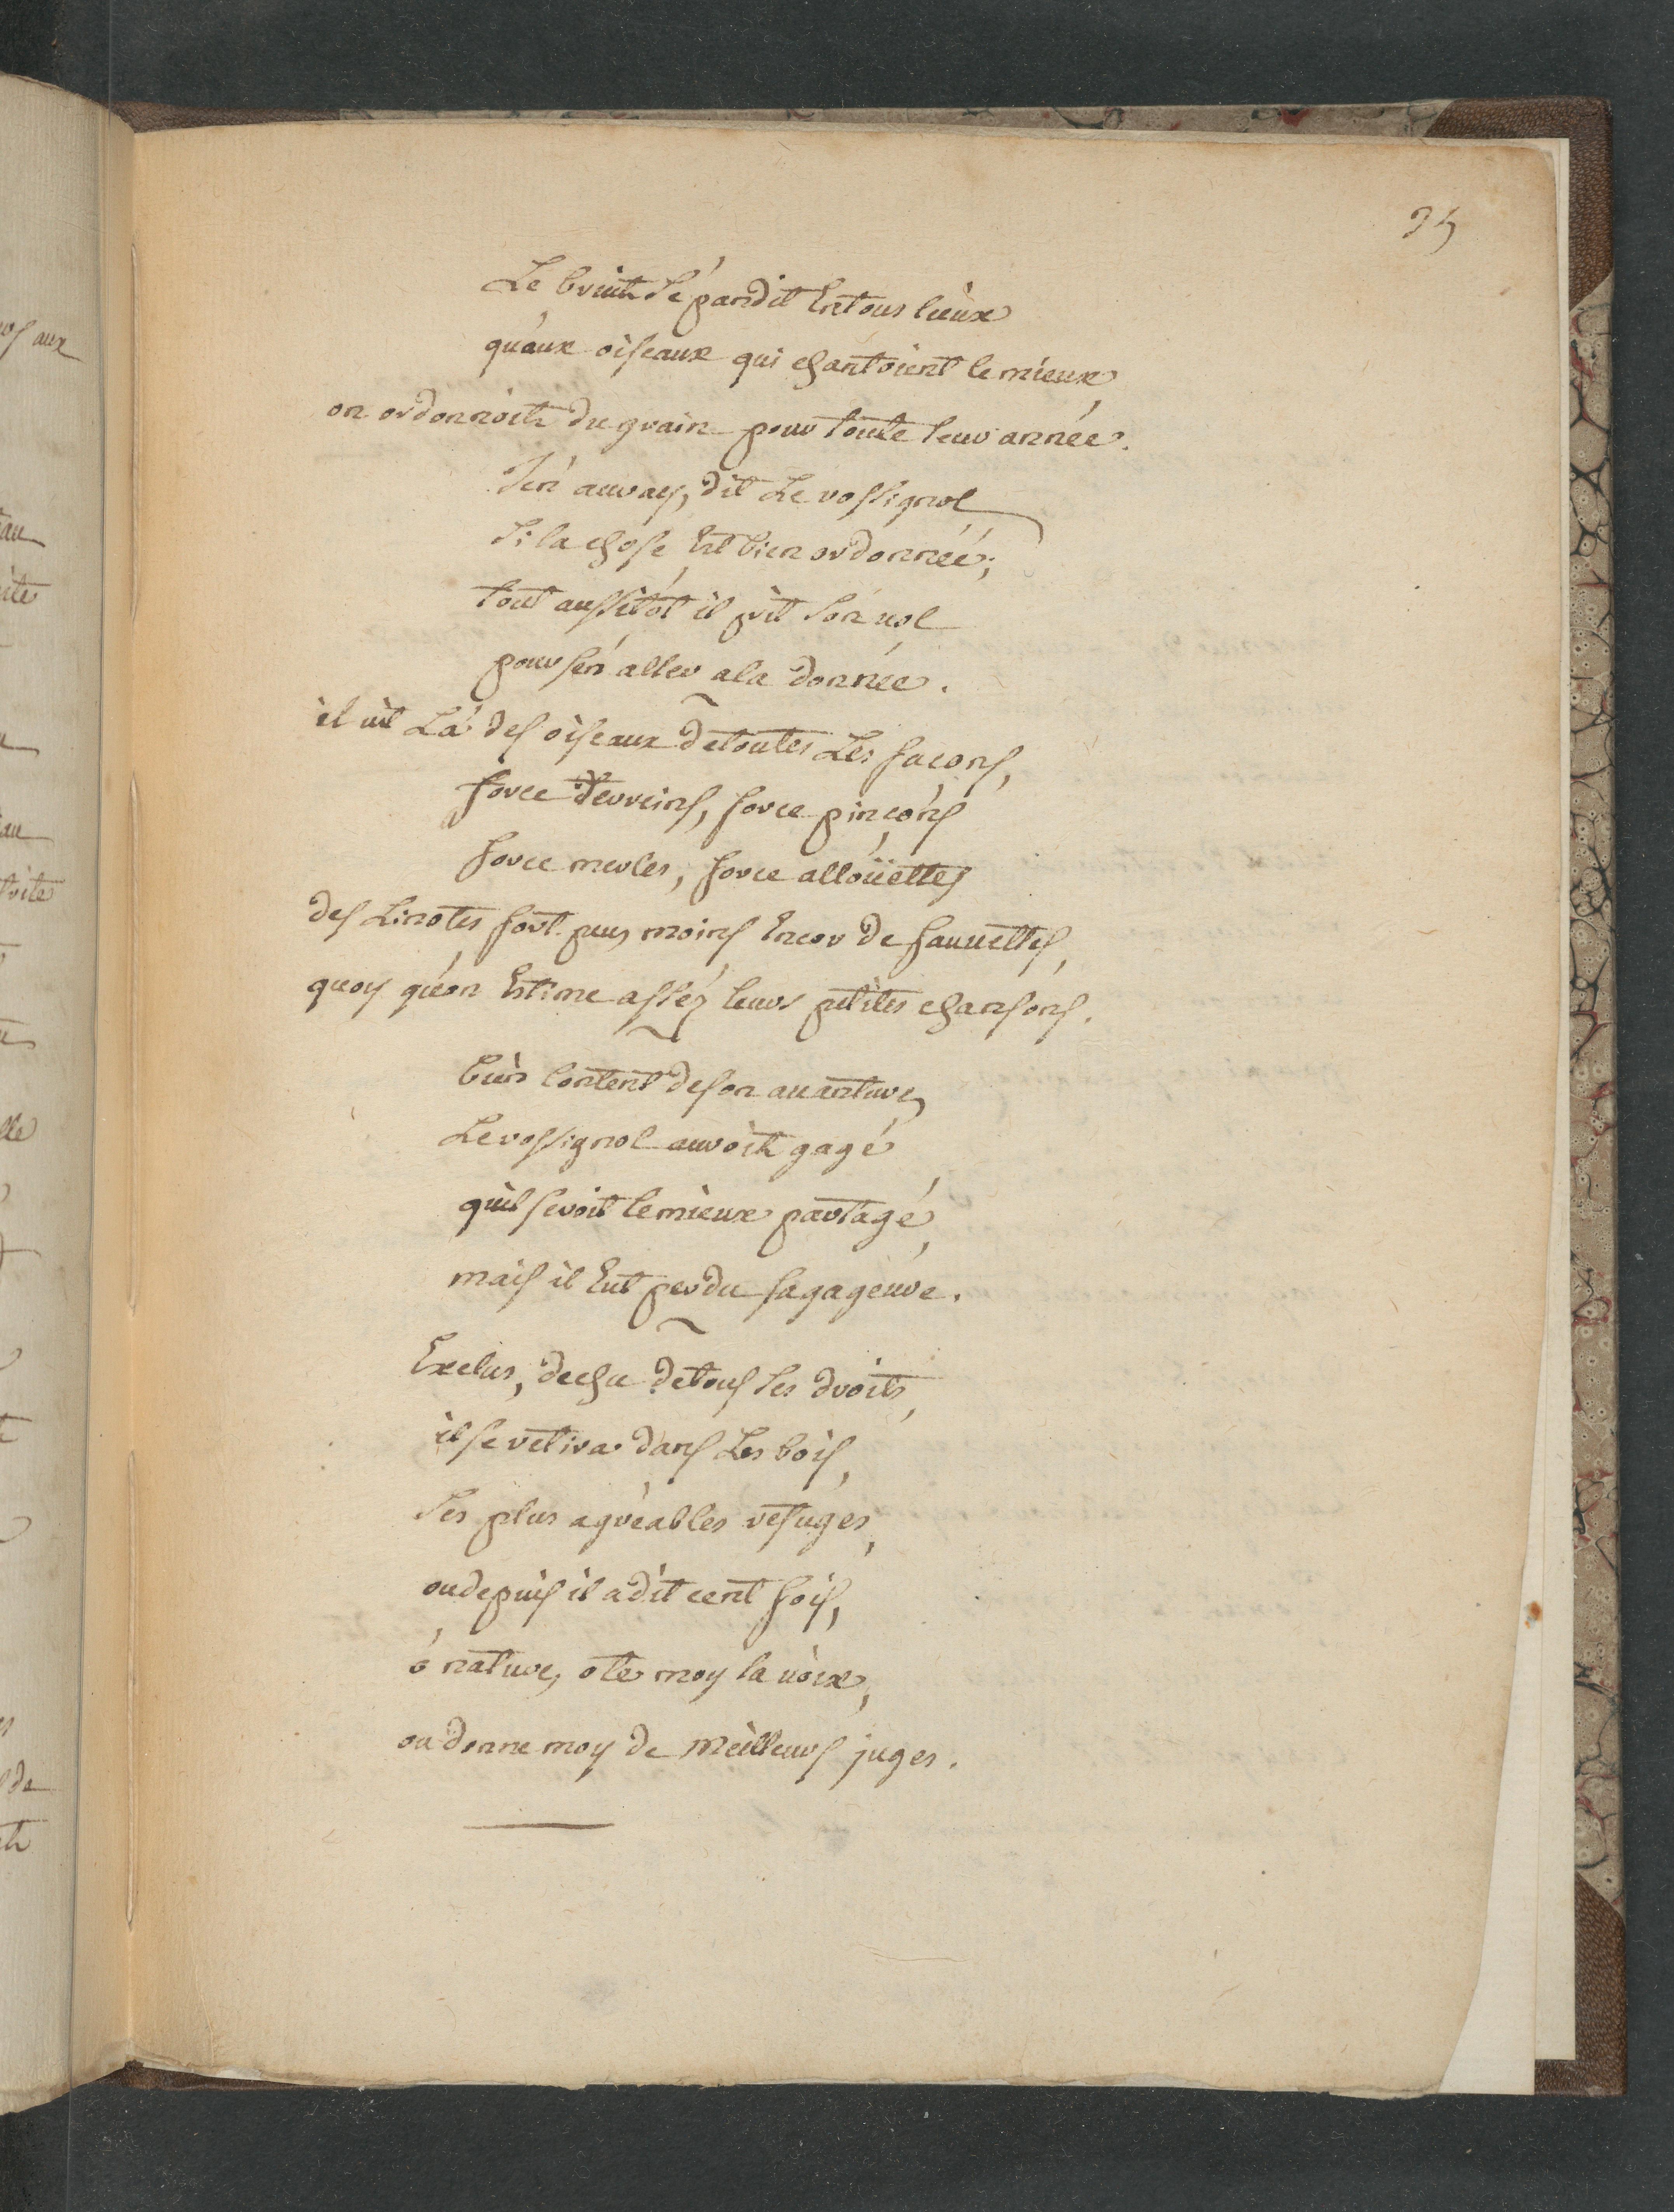 35
Le bruit Sé pandit En tous lieux
qu'aux oiseaux qui chantoient le mieux,
on ordonnoit du grain pour toute leur année.
J'en auray, dit Le rossignol
Si la chose Est bien ordonnéé;
tout aussitôt il prit Son uol
pour s'en aller a la donnée.
il uit Lá des oiseaux de toutes Les facons,
force serreins, force pinçons
force merles, force alloüettes
des Linotes fort peu, moins Encor de fauuettes,
quoy qu'on Estime assés leurs petites chansons.
bien Content de son auanture,
Le rossignol auroit gagé
quil seroit le mieux partagé,
mais il Eut perdu sa gageure.
Exclus, dechu de tous Ses droits,
il se retira dans Les bois,
Ses plus agréables refuges,
ou depuis il a dit cent fois,
ô nature, ote moy la uoix,
ou donne moy de Meilleurs juges.
os aux
eau
au
trite
lle
de